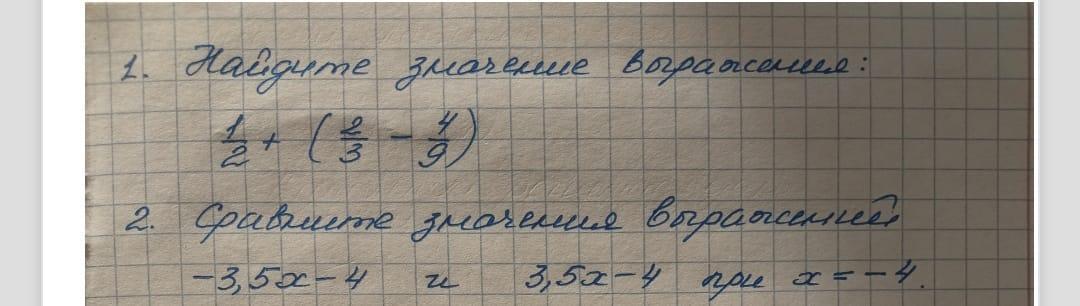 1. Найдите значение выражения:
1/2 + (2/3 - 4/9)
2. Сравните значения выражений
-3,5x-4 и 3,5x-4 при x = -4.